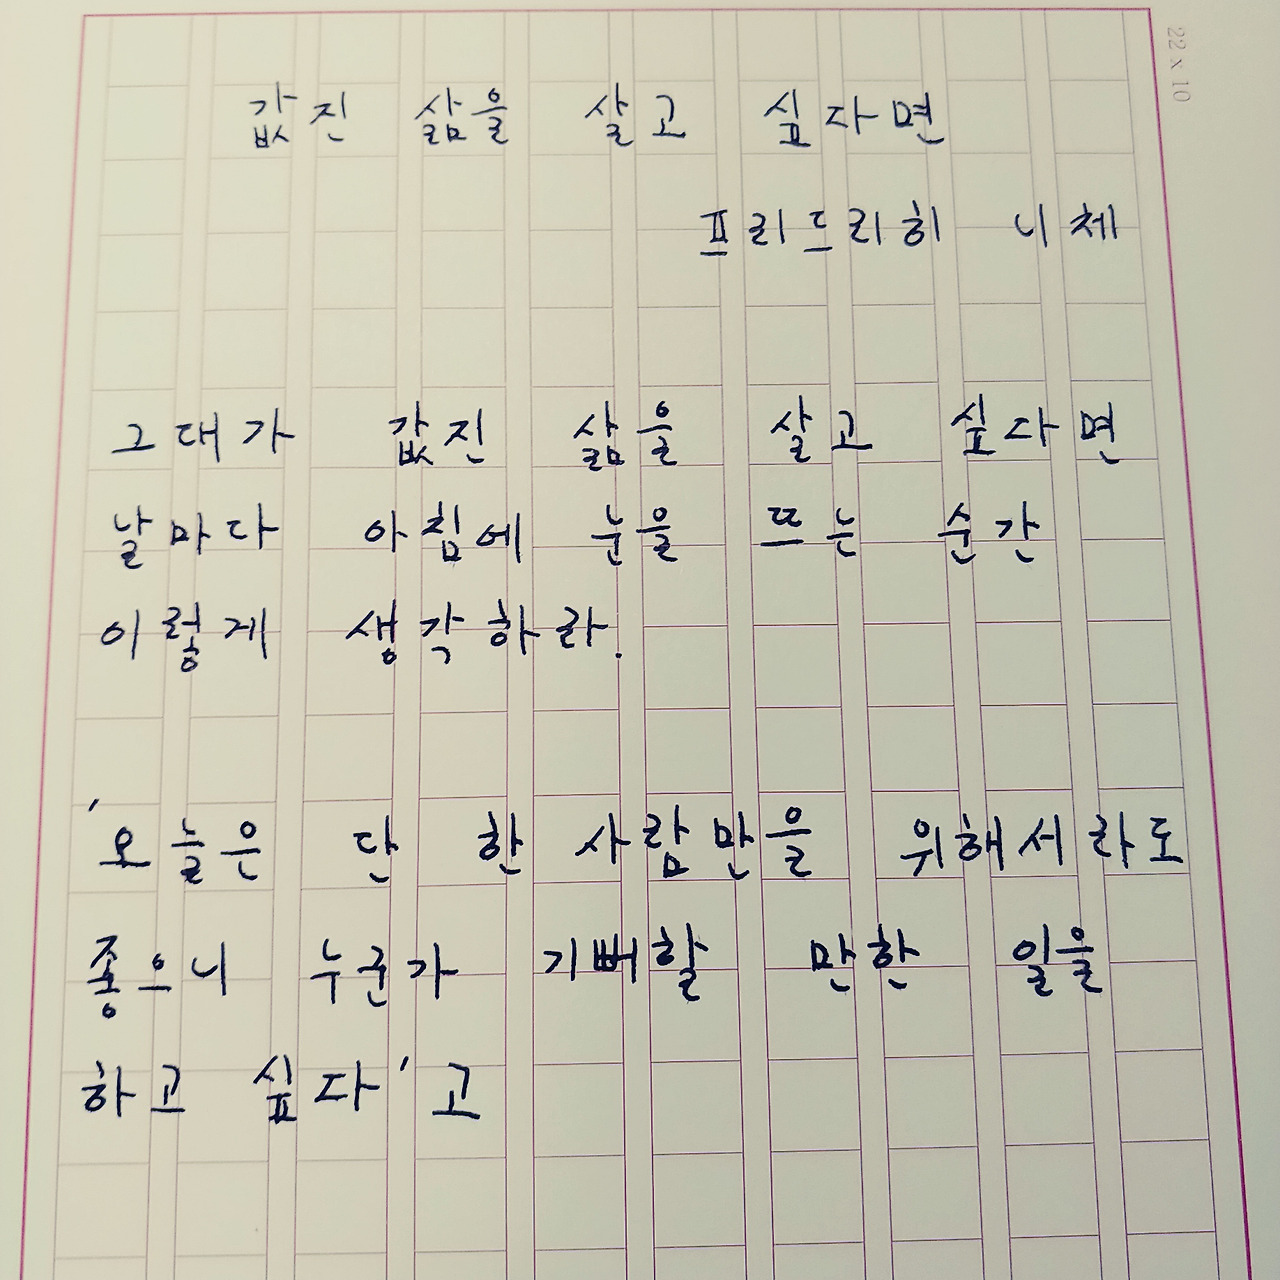 22 x 10
값진 삶을 살고 싶다면
프리드리히 니체
그대가 값진 삶을 살고 싶다면
날마다 아침에 눈을 뜨는 순간
이렇게 생각하라.
'오늘은 단 한 사람만을 위해서라도
좋으니 누군가 기뻐할 만한 일을
하고 싶다'고